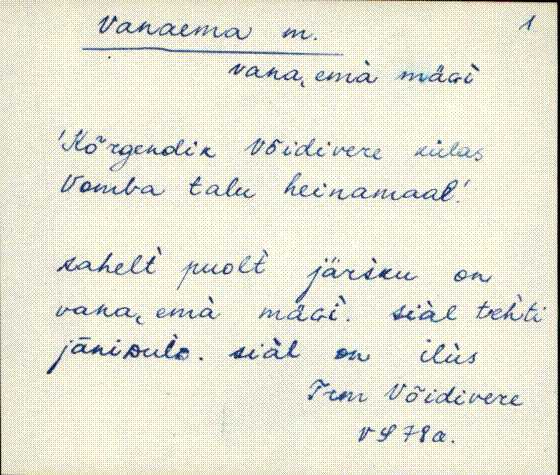 Vanaema m. 1
vana, emà mäGì
'Kõrgendik Võidivere külas
Vomba talu heinamaal'.
sahelt puolt järsku on
vana, emà mäGì. siàl tehti
jānipulo. siàl on ilùs
Irm Võidivere